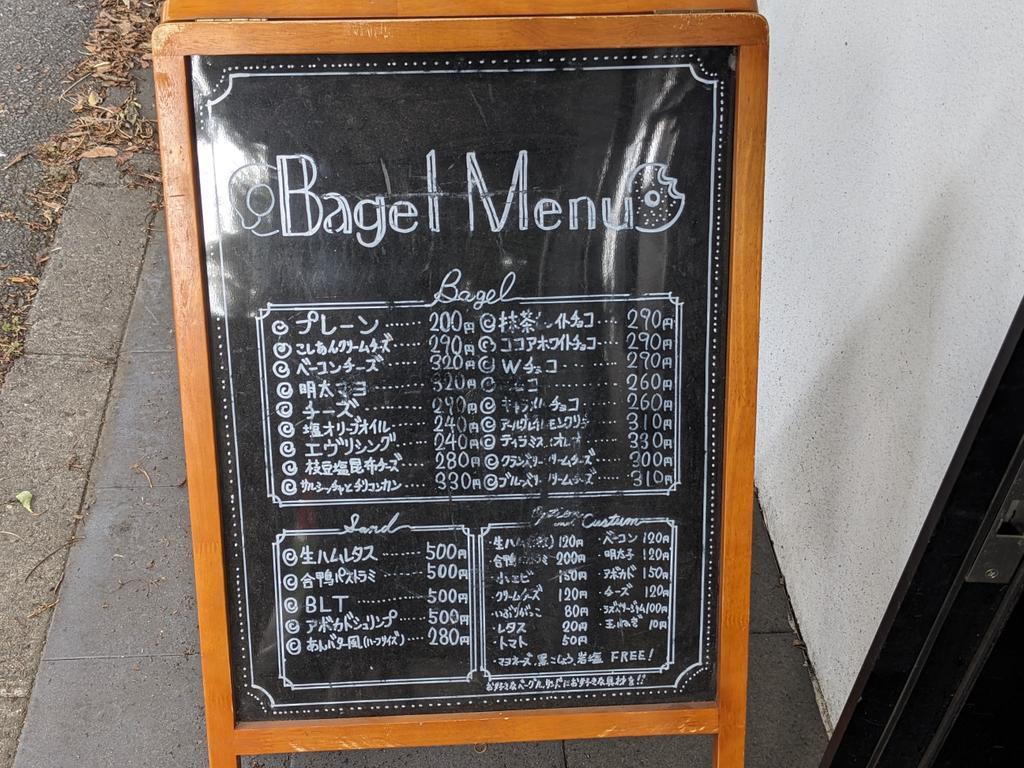 Bagel Menu
Bagel
プレーン ...... 200円
こしあんクリームチーズ ... 290円
ベーコンチーズ ...... 320円
明太マヨ ...... 320円
チーズ ...... 290円
塩オリーブオイル ...... 240円
エヴリシング ...... 240円
枝豆塩昆布チーズ ... 280円
330円
抹茶 イトチョコ ... 290円
ココアホワイトチョコ ... 290円
Wチョコ ...... 290円
260円
キャラメルチョコ ... 260円
310円
ティラミス ... 330円
クランベリークリームチーズ ... 300円
ブルーベリークリームチーズ ... 310円
Sand
生ハムレタス ...... 500円
合鴨パストラミ ...... 500円
BLT ...... 500円
アボカドシュリンプ ...... 500円
あんバター風(ハーフサイズ) ... 280円
Option and Custum
・生ハム 120円
合鴨パストラミ 200円
・小エビ 150円
・クリームチーズ 120円
・いぶりがっこ 80円
・レタス 20円
・トマト 50円
・ベーコン 120円
・明太子 120円
・アボカド 150円
・チーズ 120円
・ラズベリージャム 100円
・玉ねぎ 10円
・マヨネーズ、黒こしょう、岩塩 FREE!
お好きなベーグル、サンドにお好きな具材を!!